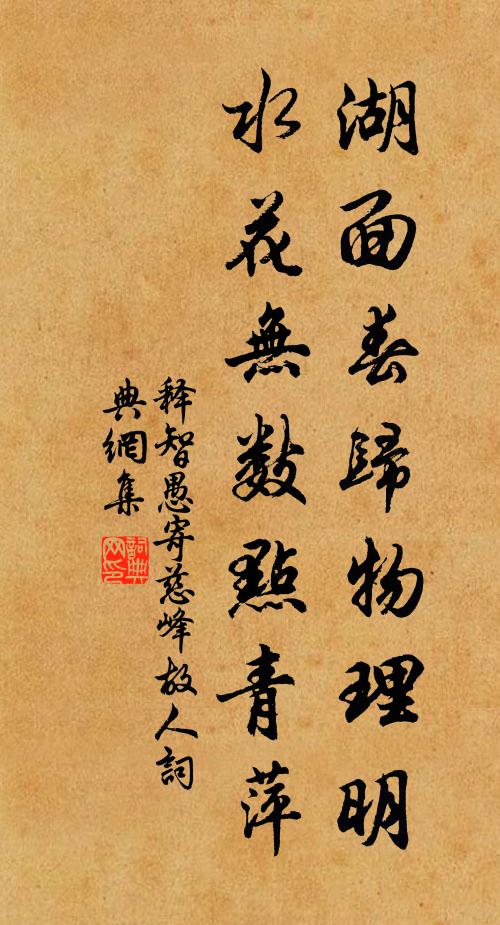 湖面春歸物理明
水花無数點青萍
释智愚寄慈峰故人詞
典網集
詞典
网印